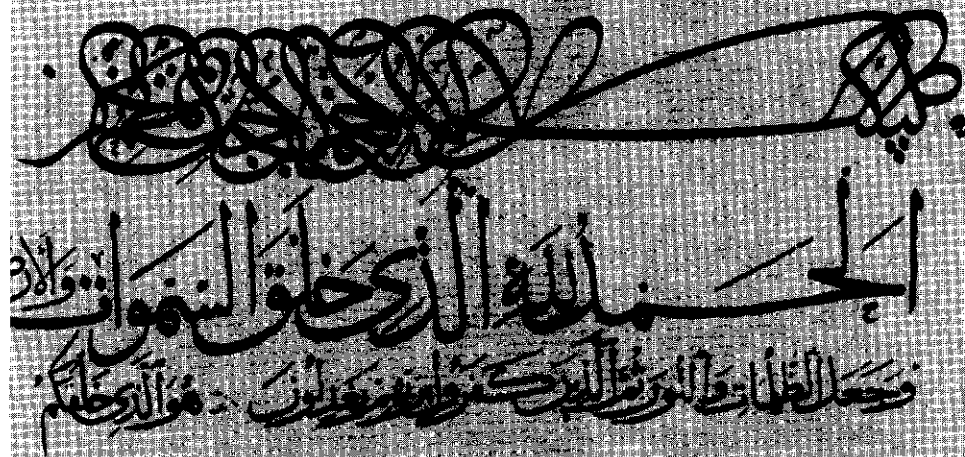 بسم الله الرحمن الرحيم
الحمد لله الذي خلق السموات والارض
وجعل الظلمات والنور ثم الذين كفروا بربهم يعدلون هو الذي خلقكم